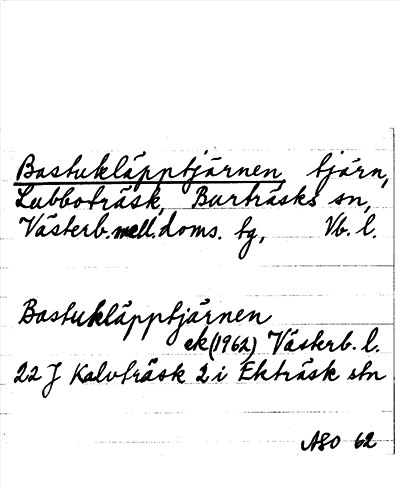 Bastukläpptjärnen, tjärn,
Lubboträsk, Burträsks sn,
Västerb. mell. doms. tg, Vb. l.
Bastukläpptjärnen
ek (1962) Västerb. l.
22 J Kalvträsk 2 i Ekträsk stn
ASO 62